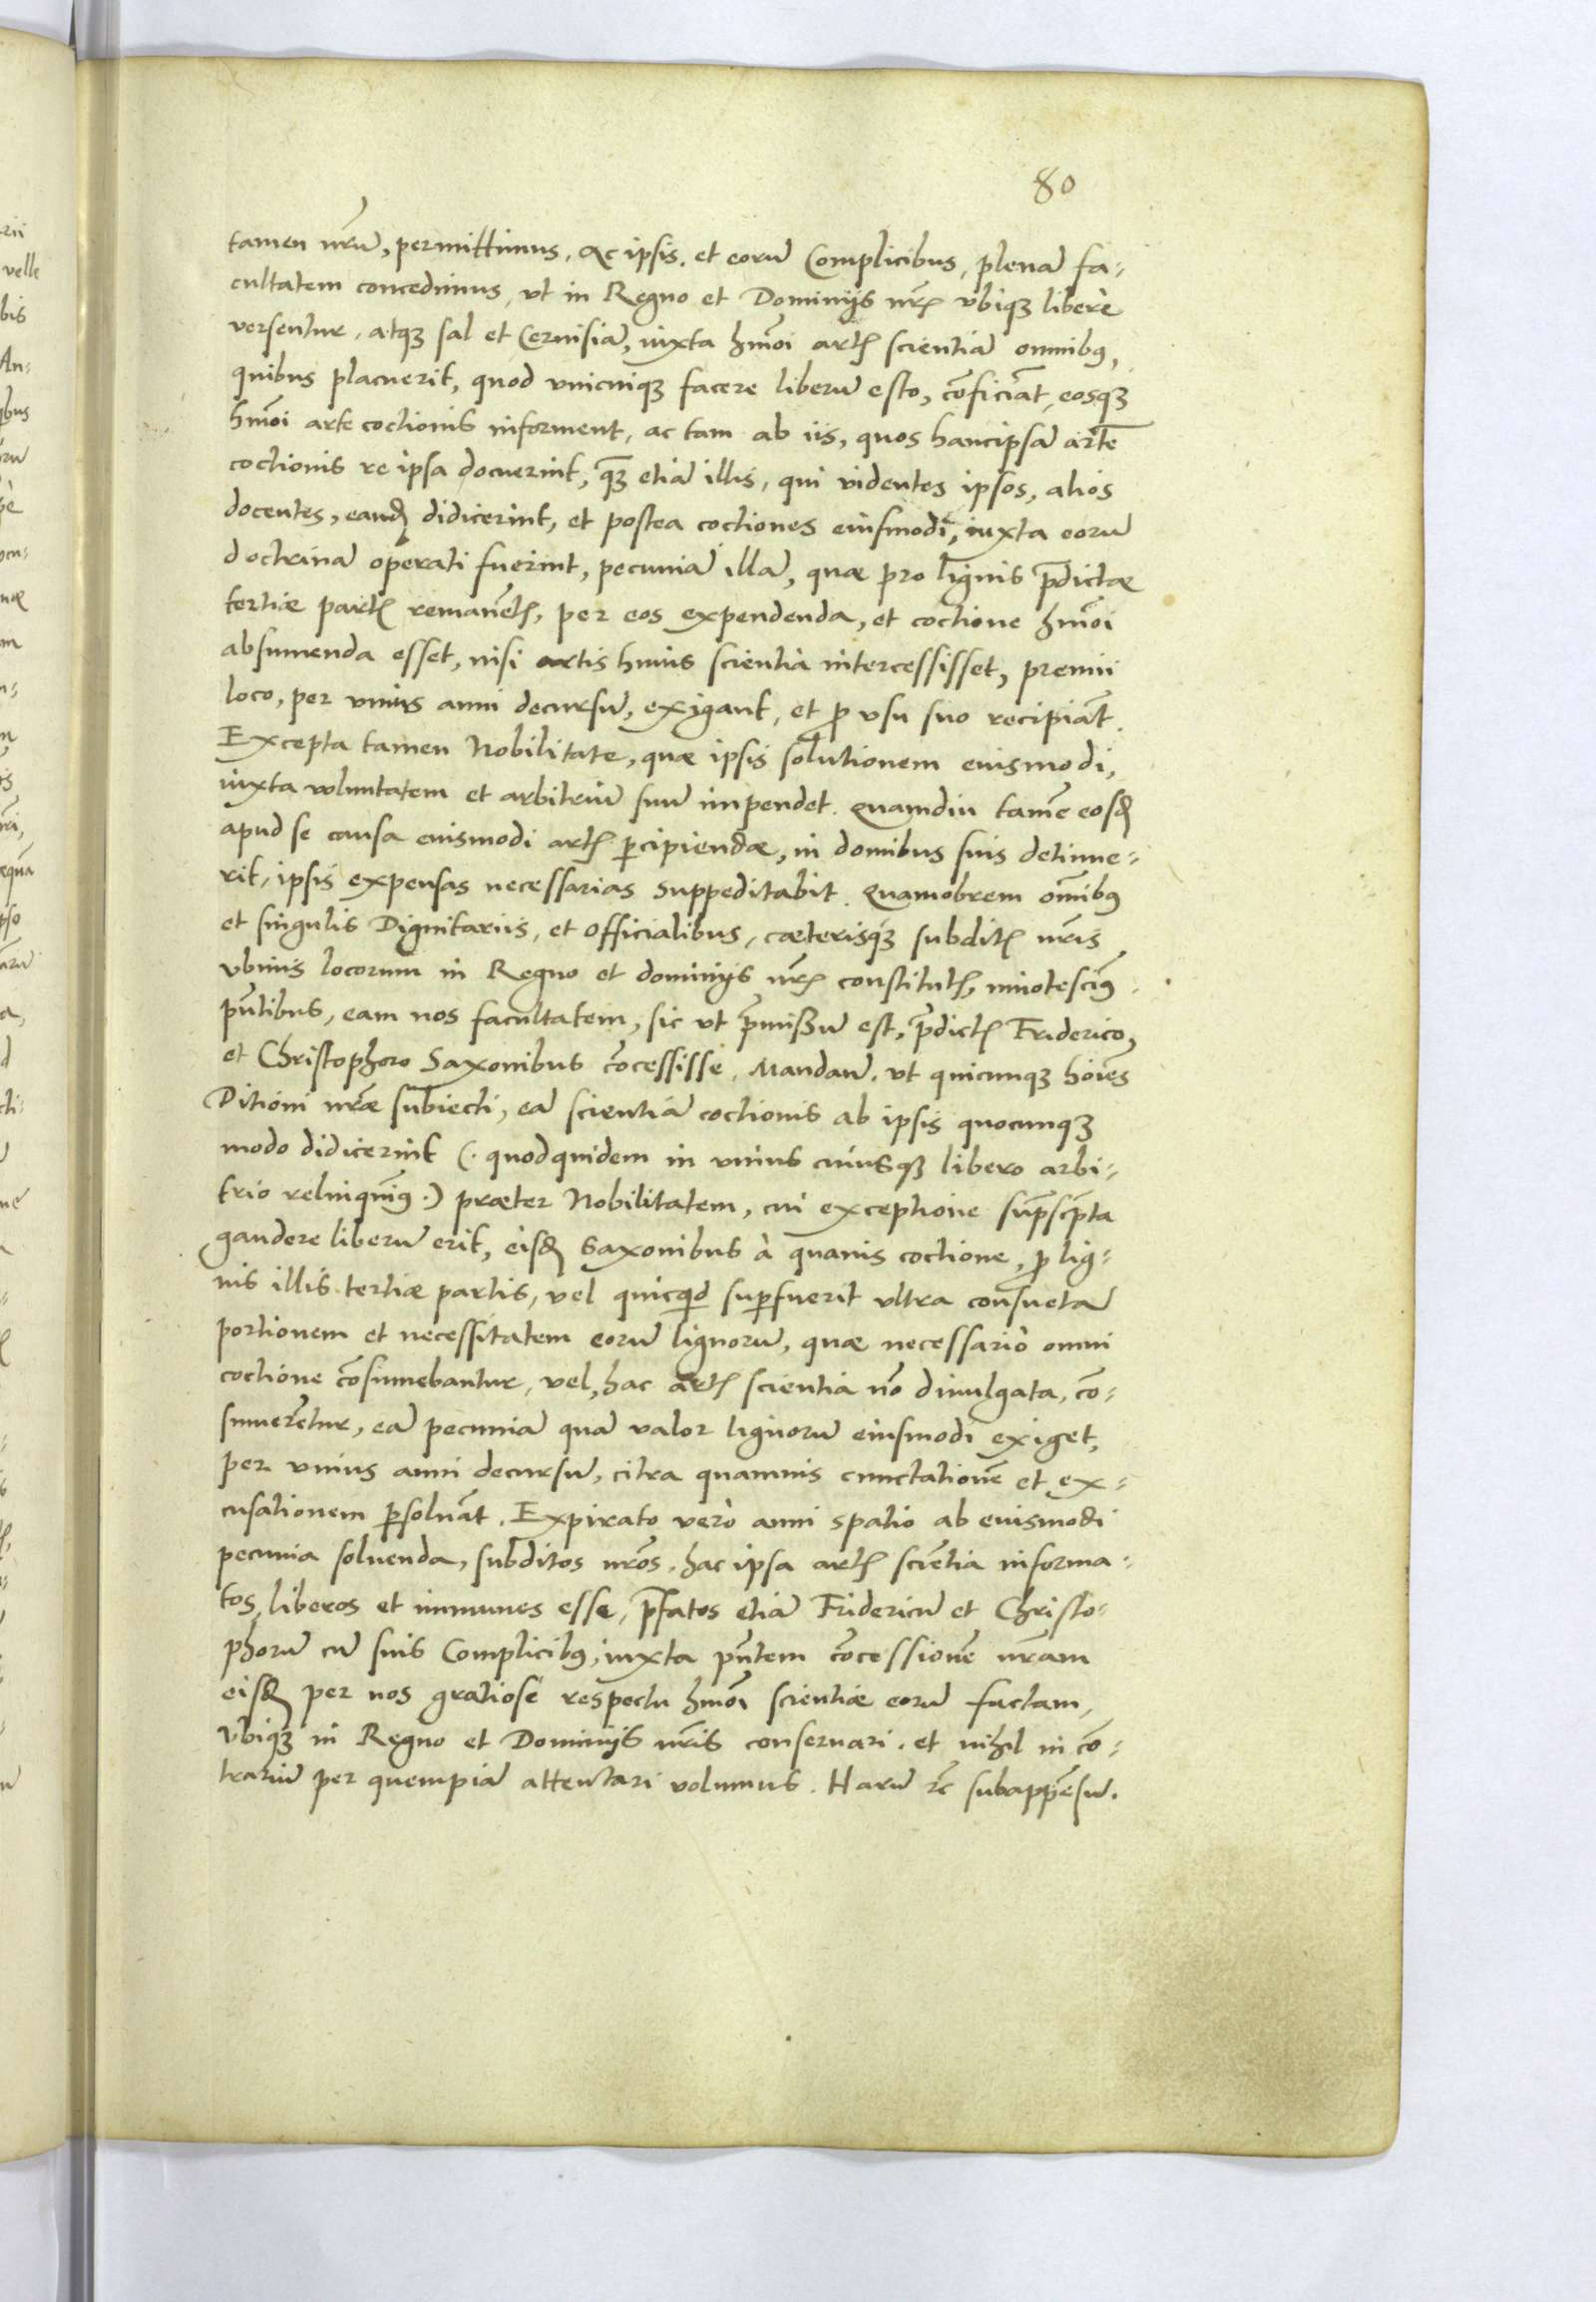 80
tamen nrũ, permittimus. Ac ipsis, et eorũ Complicibus, plenã fa-
cultatem concedimus, vt in Regno et Dominijs nrꝭ vbiqꝫ libere
versentur, atqꝫ sal et Ceruisiã, iuxta hmõi artꝭ scientiã omnibꝰ,
quibus placuerit, quod vnicuiqꝫ facere liberũ esto, cõficiãt, eosqꝫ
hmõi arte coctionis informent, ac tam ab iis, quos hancipsã artẽ
coctionis re ipsa docuerint, qꝫ etiã illis, qui videntes ipsos, alios
docentes, eandꝫ didicerint, et postea coctiones eiusmodi, iuxta eorũ
doctrinã operati fuerint, pecuniã illã, quæ pro lignis p̃dictæ
tertiæ partꝭ remanẽtꝭ, per eos expendenda, et coctione hmõi
absumenda esset, nisi artis huius scientia intercessisset, premii
loco, per vnius anni decursũ, exigant, et ꝓ vsu suo recipiãt.
Excepta tamen Nobilitate, quæ ipsis solutionem eiusmodi,
iuxta voluntatem et arbitriũ suũ impendet. Quamdiu tamẽ eosdꝫ
apud se causa eiusmodi artꝭ ꝑcipiendæ, in domibus suis detinue-
rit, ipsis expensas necessarias suppeditabit. Quamobrem om̃ibꝰ
et singulis Dignitariis, et Officialibus, cæterisqꝫ subditꝭ nris
vbiuis locorum in Regno et dominijs nrꝭ constitutꝭ, innotescimꝰ
pñtibus, eam nos facultatem, sic vt p̃missũ est, p̃dictꝭ Friderico,
et Christophoro Saxonibus cõcessisse. Mandañ. vt quicunqꝫ hoĩes
Ditioni nræ subiecti, eã scientiã coctionis ab ipsis quocunqꝫ
modo didicerint (. quodquidem in vnius cuiusqꝫ libero arbi-
trio relinquimꝰ.) præter Nobilitatem, cui exceptione sup̃scp̃ta
gaudere liberũ erit, eisdꝫ Saxonibus à quauis coctione, ꝓ lig-
nis illis tertiæ partis, vel quicqd suꝑfuerit vltra consuetã
portionem et necessitatem eorũ lignorũ, quæ necessariò omni
coctione cõsumebantur, vel, hac artꝭ scientia nõ diuulgata, cõ-
sumerẽtur, eã pecuniã quã valor lignorũ eiusmodi exiget,
per vnius anni decursũ, citra quamuis cunctationẽ et ex-
cusationem ꝑsoluãt. Expirato verò anni spatio ab eiusmodi
pecunia soluenda, subditos nrõs, hac ipsa artꝭ sciẽtia informa-
tos, liberos et immunes esse, p̃fatos etiã Fridericũ et Christo-
phorũ cũ suis Complicibꝰ, iuxta pñtem cõcessionẽ nram
eisdꝫ per nos gratiosè respectu hmõi scientiæ eorũ factam,
Vbiqꝫ in Regno et Dominijs nris conseruari. et nihil in cõ-
trariũ per quempiã attentari volumus. Harũ rẽ subappẽsũ.